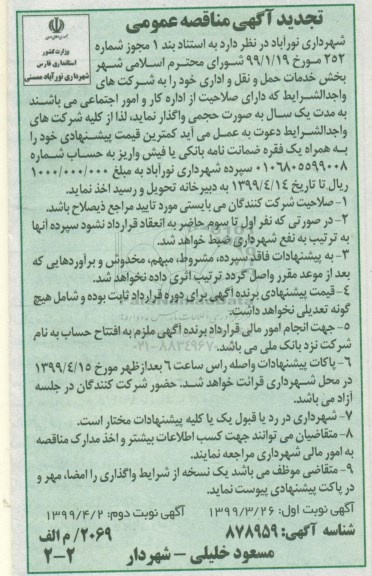 تجدید آگهی مناقصه عمومی
وزارت کشور
استانداری فارس
شهرداری نورآباد ممسنی
شهرداری نورآباد در نظر دارد به استناد بند ۱ مجوز شماره
۲۵۲ مورخ ۹۹/۱/۱۹ شورای محترم اسلامی شهر
بخش خدمات حمل و نقل و اداری خود را به شرکت های
واجدالشرایط که دارای صلاحیت از اداره کار و امور اجتماعی می باشند
به مدت یک سال به صورت حجمی واگذار نماید، لذا از کلیه شرکت های
واجدالشرایط دعوت به عمل می آید کمترین قیمت پیشنهادی خود را
به همراه یک فقره ضمانت نامه بانکی یا فیش واریز به حساب شماره
۰۱۰۶۸۰۵۵۹۹۰۰۸ سپرده شهرداری نورآباد به مبلغ ۱۰۰۰/۰۰۰/۰۰۰
ریال تا تاریخ ۱۳۹۹/۴/۱۴ به دبیرخانه تحویل و رسید اخذ نماید.
۱- صلاحیت شرکت کنندگان می بایستی مورد تایید مراجع ذیصلاح باشد.
۲- در صورتی که نفر اول تا سوم حاضر به انعقاد قرارداد نشود سپرده آنها
به ترتیب به نفع شهرداری ضبط خواهد شد.
۳- به پیشنهادات فاقد سپرده، مشروط، مبهم، مخدوش و برآوردهایی که
بعد از موعد مقرر واصل گردد ترتیب اثری داده نخواهد شد.
۴- قیمت پیشنهادی برنده آگهی برای دوره قرارداد ثابت بوده و شامل هیچ
گونه تعدیلی نخواهد داشت.
۵- جهت انجام امور مالی قرارداد برنده آگهی ملزم به افتتاح حساب به نام
شرکت نزد بانک ملی می باشد.
۶- پاکات پیشنهادات واصله راس ساعت ۶ بعدازظهر مورخ ۱۳۹۹/۴/۱۵
در محل شهرداری قرائت خواهد شد. حضور شرکت کنندگان در جلسه
آزاد می باشد.
۷- شهرداری در رد یا قبول یک یا کلیه پیشنهادات مختار است.
۸- متقاضیان می توانند جهت کسب اطلاعات بیشتر و اخذ مدارک مناقصه
به امور مالی شهرداری مراجعه نمایند.
۹- متقاضی موظف می باشد یک نسخه از شرایط واگذاری را امضا، مهر و
در پاکت پیشنهادی پیوست نماید.
آگهی نوبت اول: ۱۳۹۹/۳/۲۶ آگهی نوبت دوم: ۱۳۹۹/۴/۲
شناسه آگهی: ۸۷۸۹۵۹ ۲۰۶۹/ م الف
مسعود خلیلی - شهردار ۲-۲